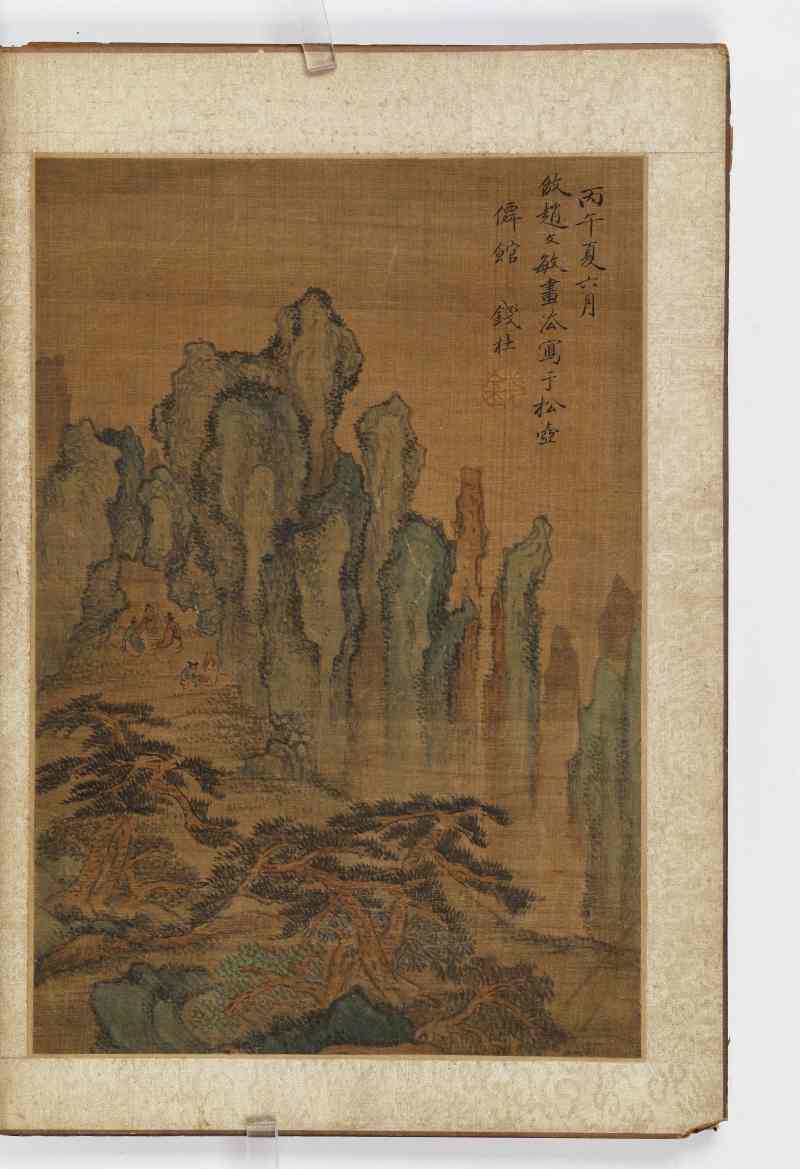 丙午夏六月
倣趙文敏畫法寫于松壺
僊館 錢杜